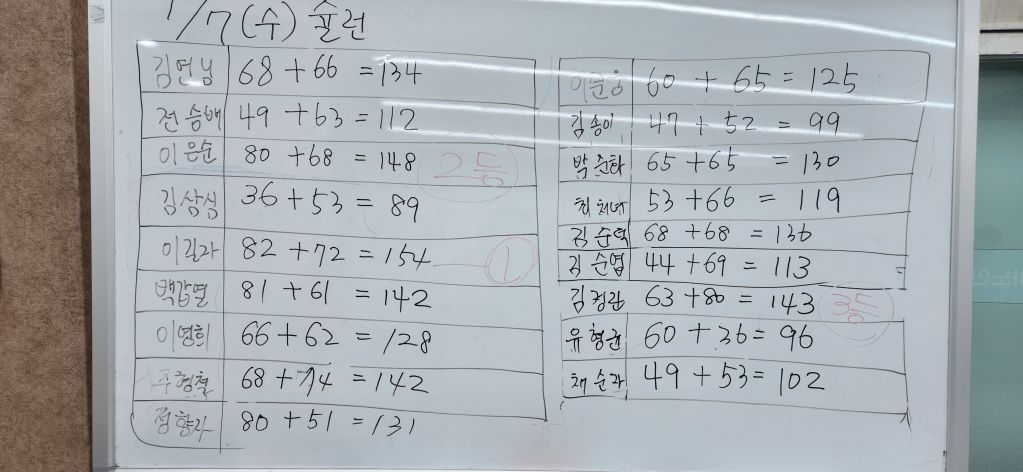 1/7(수) 슐런
김연님 68 + 66 = 134
전승배 49 + 63 = 112
이은순 80 + 68 = 148 2등
김상심 36 + 53 = 89
이길자 82 + 72 = 154 ①
백갑열 81 + 61 = 142
이영희 66 + 62 = 128
주형철 68 + 74 = 142
정향자 80 + 51 = 131
60 + 65 = 125
김송이 47 + 52 = 99
박준타 65 + 65 = 130
53 + 66 = 119
김순덕 68 + 68 = 136
김순엽 44 + 69 = 113
김정관 63 + 80 = 143 3등
유형권 60 + 36 = 96
채순자 49 + 53 = 102